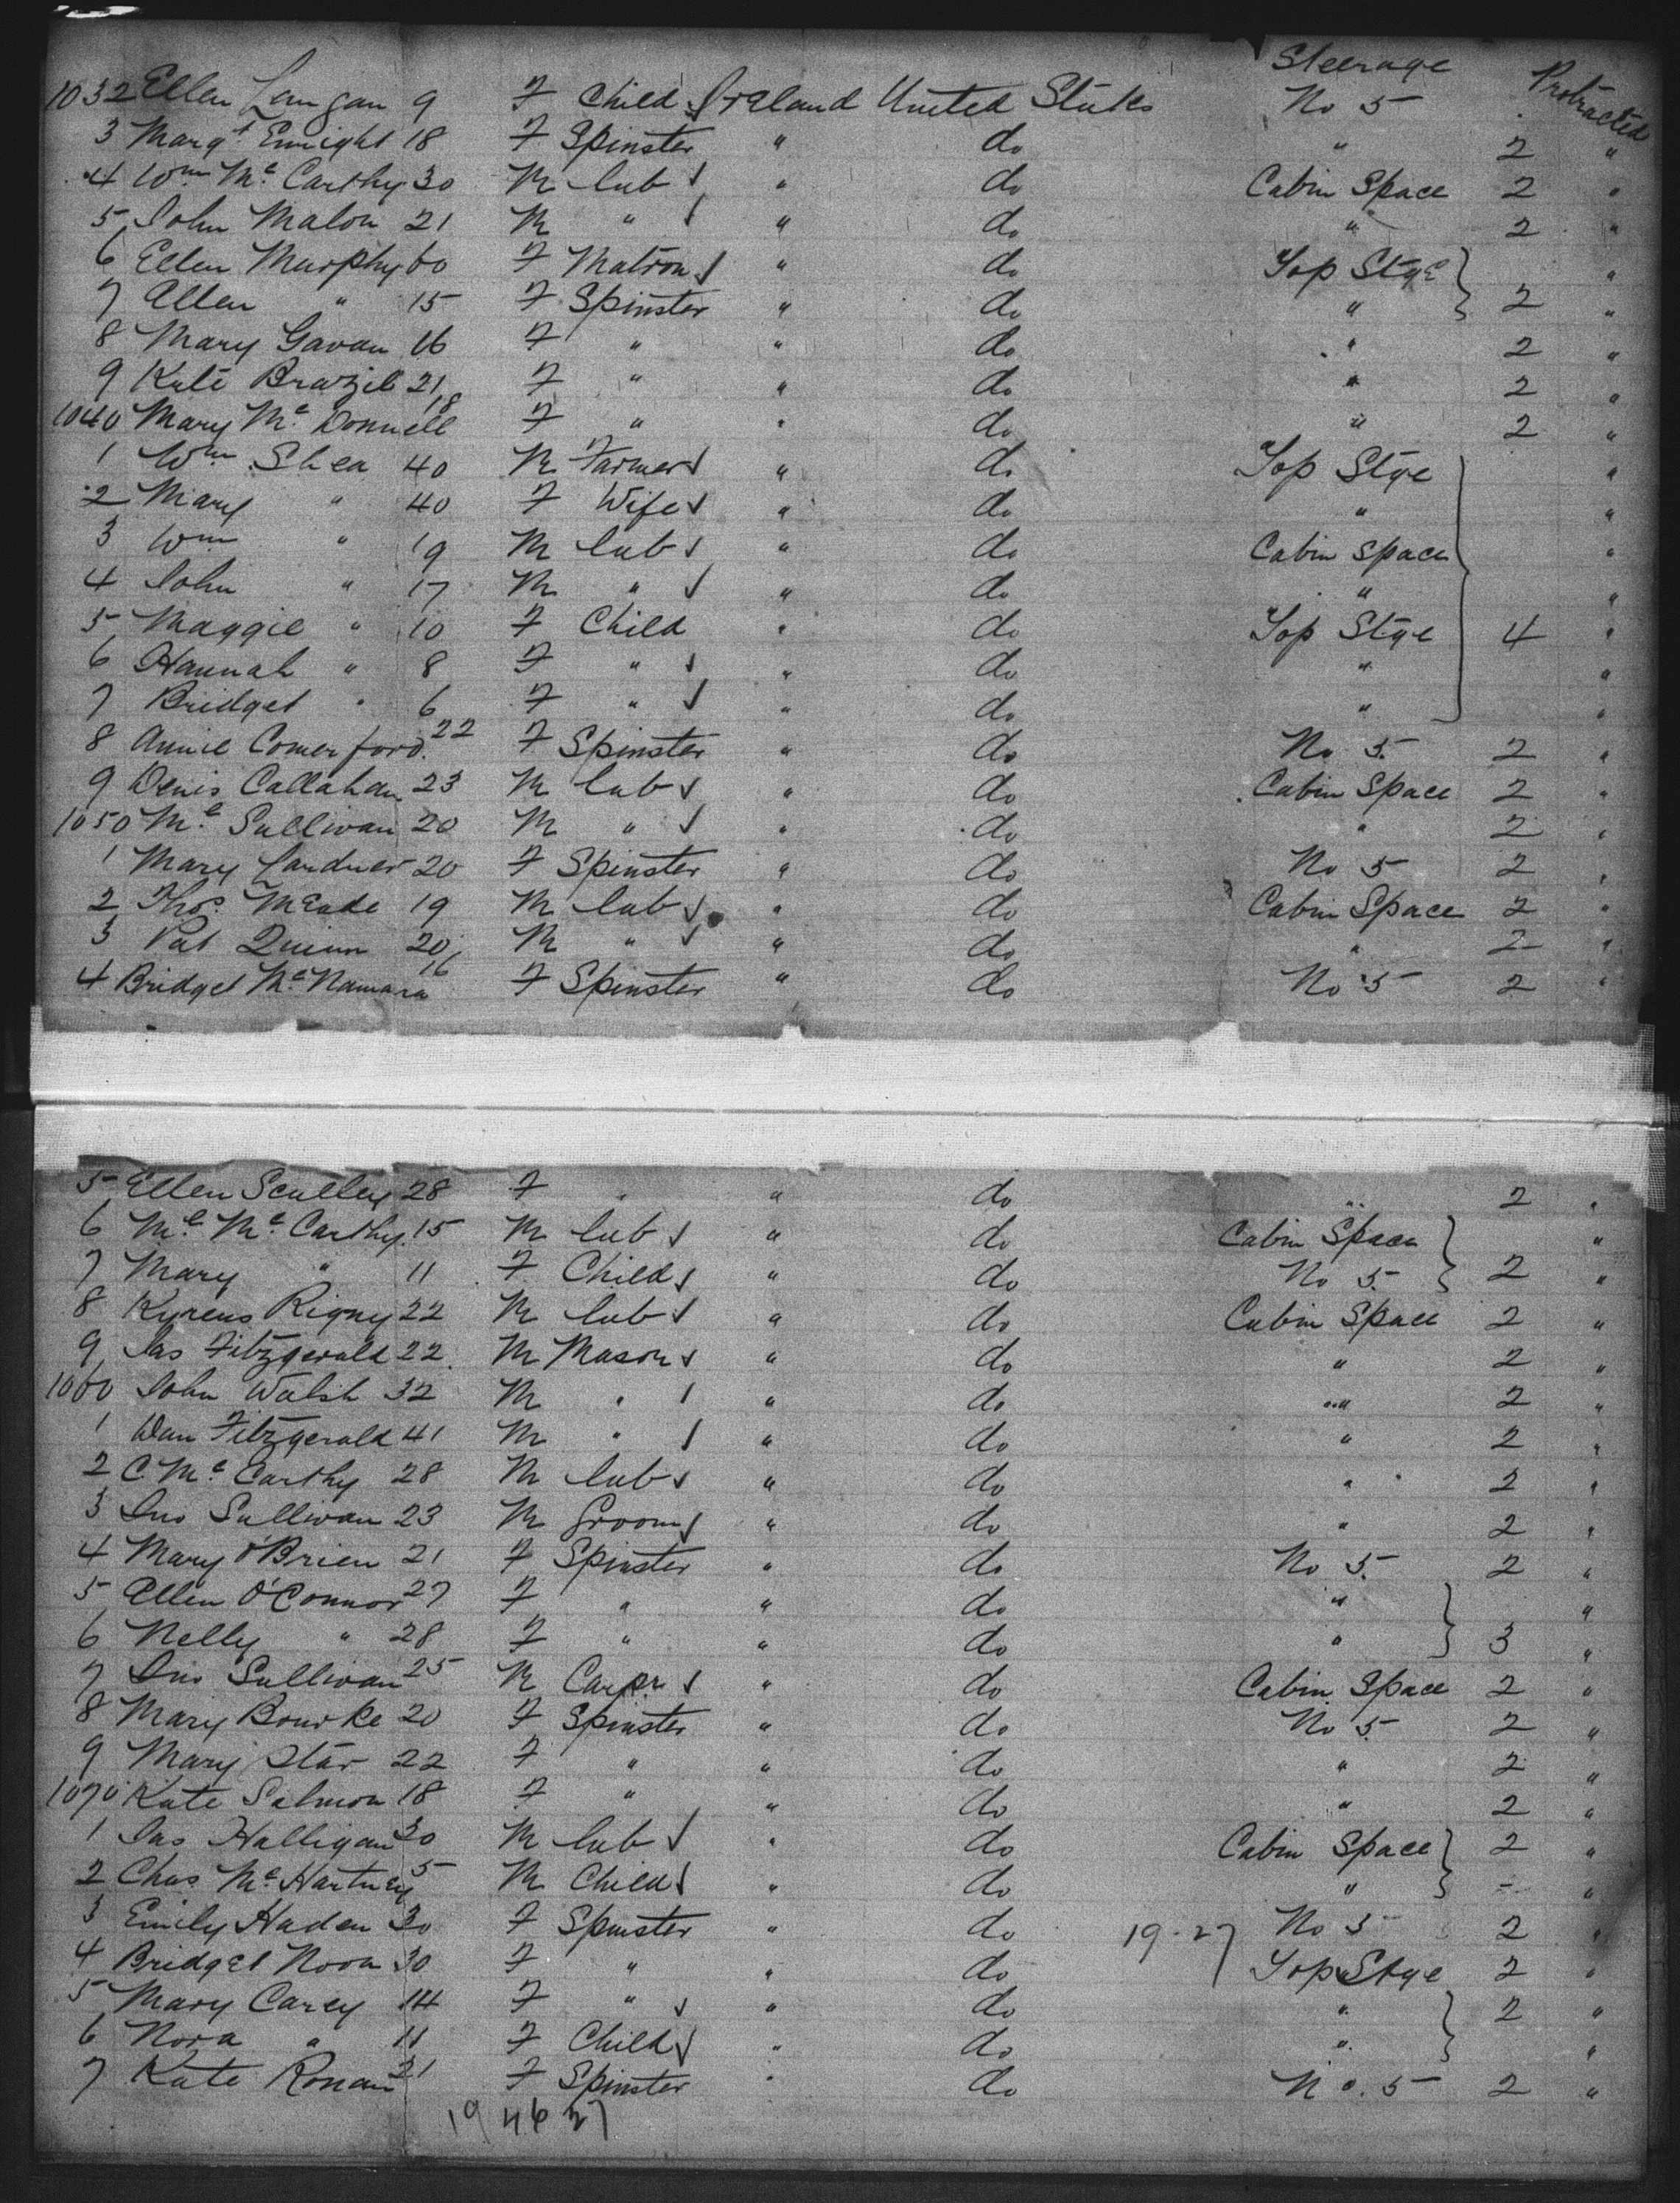 Steerage
1032 Ellen Langan 9 F Child Ireland United States No 5 Protracted
3 Margt Enright 18 F Spinster " do " 2 "
4 Wm Mc Carthy 30 M lab " do Cabin Space 2 "
5 John Malon 21 M " " do " 2 "
6 Ellen Murphy 60 F Matron " do Top Stge "
7 Ellen " 15 F Spinster " do " 2 "
8 Mary Gavan 16 F " " do " 2 "
9 Kate Brazil 21 F " " do " 2 "
1040 Mary Mc Donnell 18 F " " do " 2 "
1 Wm Shea 40 M Farmer " do Top Stge "
2 Mary " 40 F Wife " do " "
3 Wm " 19 M lab " do Cabin Space "
4 John " 17 M " " do " "
5 Maggie " 10 F Child " do Top Stge 4 "
6 Hannah " 8 F " " do " "
7 Bridget " 6 F " " do " "
8 Annie Comerford 22 F Spinster " do No 5 2 "
9 Denis Callahan 23 M lab " do Cabin Space 2 "
1050 Ml Sullivan 20 M " " do " 2 "
1 Mary Lardner 20 F Spinster " do No 5 2 "
2 Thos Meade 19 M lab " do Cabin Space 2 "
3 Pat Quinn 20 M " " do " 2 "
4 Bridget Mc Namara 16 F Spinster " do No 5 2 "
5 Ellen Sculley 28 F " " do " 2 "
6 Ml Mc Carthy 15 M lab " do Cabin Space "
7 Mary " 11 F Child " do No 5 2 "
8 Kyrens Rigney 22 M lab " do Cabin Space 2 "
9 Jas Fitzgerald 22 M Mason " do " 2 "
1060 John Walsh 32 M " " do " 2 "
1 Dan Fitzgerald 41 M " " do " 2 "
2 C Mc Carthy 28 M lab " do " 2 "
3 Jno Sullivan 23 M Groom " do " 2 "
4 Mary O'Brien 21 F Spinster " do No 5 2 "
5 Ellen O'Connor 27 F " " do " "
6 Nelly " 28 F " " do " 3 "
7 Jno Sullivan 25 M Carpr " do Cabin Space 2 "
8 Mary Bourke 20 F Spinster " do No 5 2 "
9 Mary Star 22 F " " do " 2 "
1070 Kate Salmon 18 F " " do " 2 "
1 Jas Halligan 30 M lab " do Cabin Space 2 "
2 Chas Mc Hartney 5 M Child " do " - "
3 Emily Haden 30 F Spinster " do 19-27 No 5 2 "
4 Bridget Noon 30 F " " do Top Stge 2 "
5 Mary Carey 14 F " " do " 2 "
6 Nora " 11 F Child " do " "
7 Kate Ronan 21 F Spinster " do No. 5 2 "
19 46 27